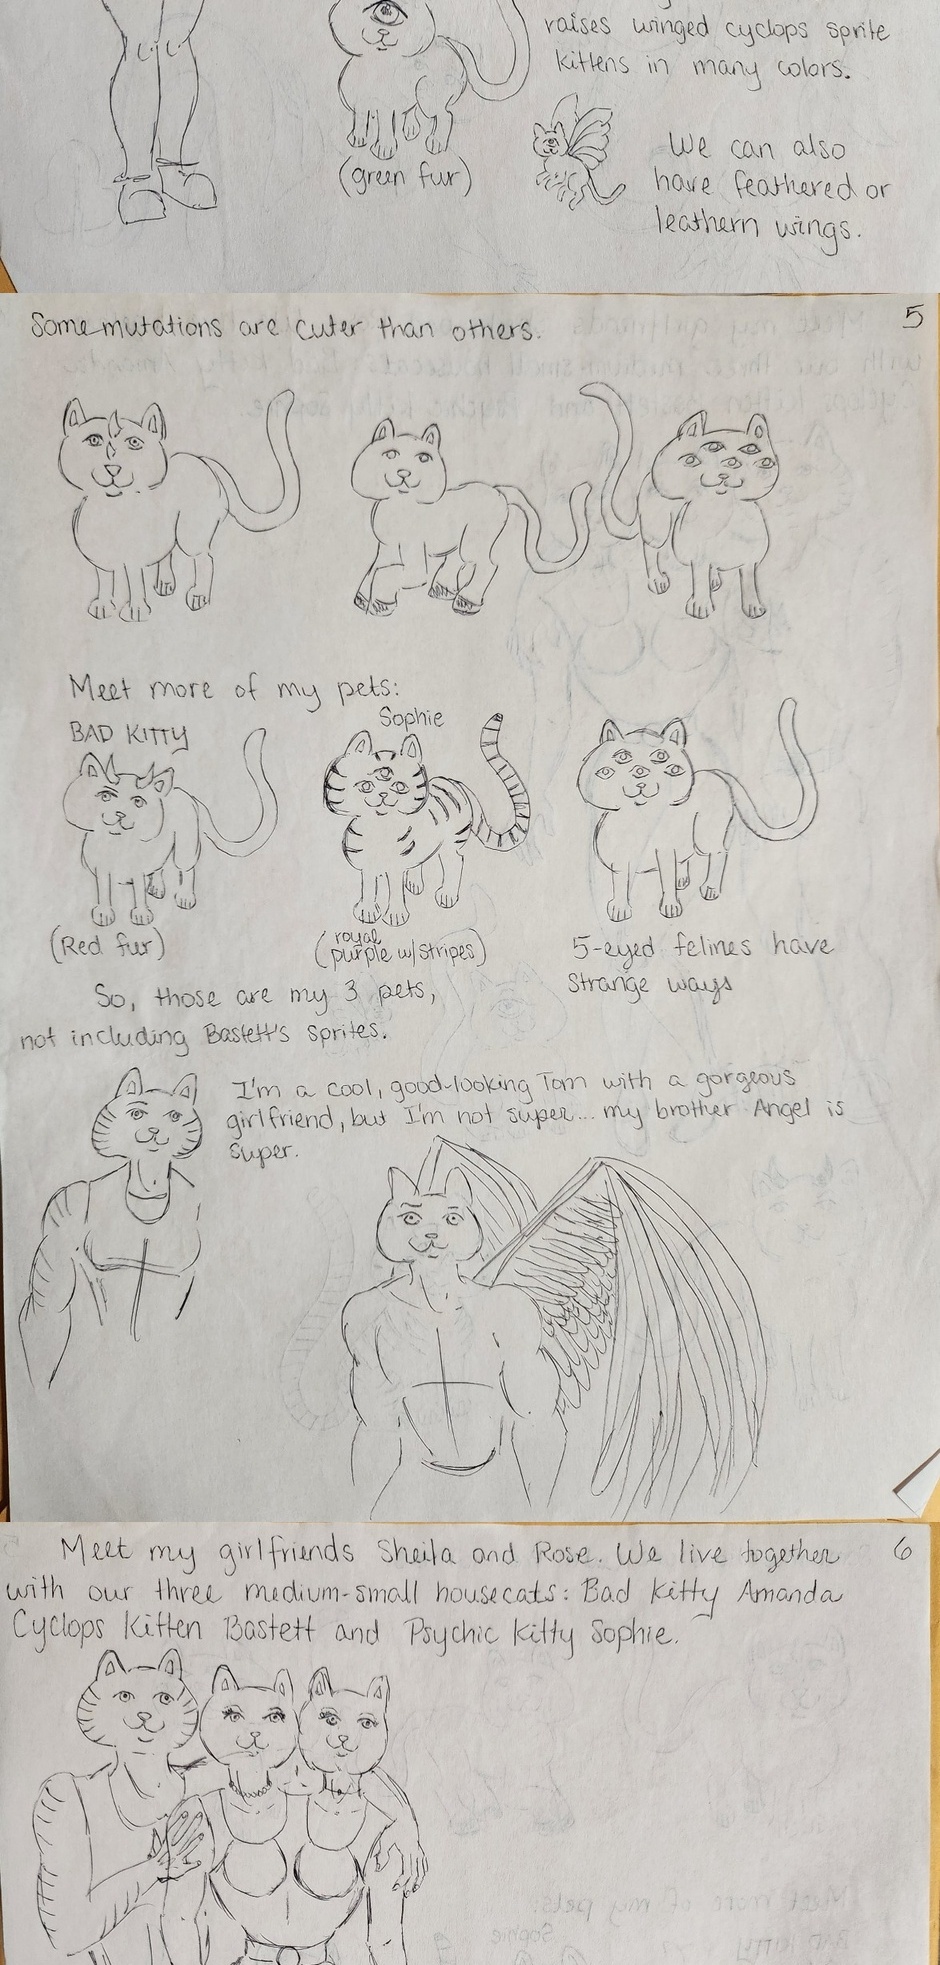 raises winged cyclops sprite
kittens in many colors.
(green fur)
We can also
have feathered or
leathern wings.
5
Some mutations are cuter than others.
Meet more of my pets:
BAD KITTY
Sophie
(Red fur)
(royal
purple w/stripes)
5-eyed felines have
strange ways
So, those are my 3 pets,
not including Bastett's sprites.
I'm a cool, good-looking Tom with a gorgeous
girlfriend, but I'm not super... my brother Angel is
super.
6
Meet my girlfriends Sheila and Rose. We live together
with our three medium-small housecats: Bad Kitty Amanda
Cyclops Kitten Bastett and Psychic Kitty Sophie.